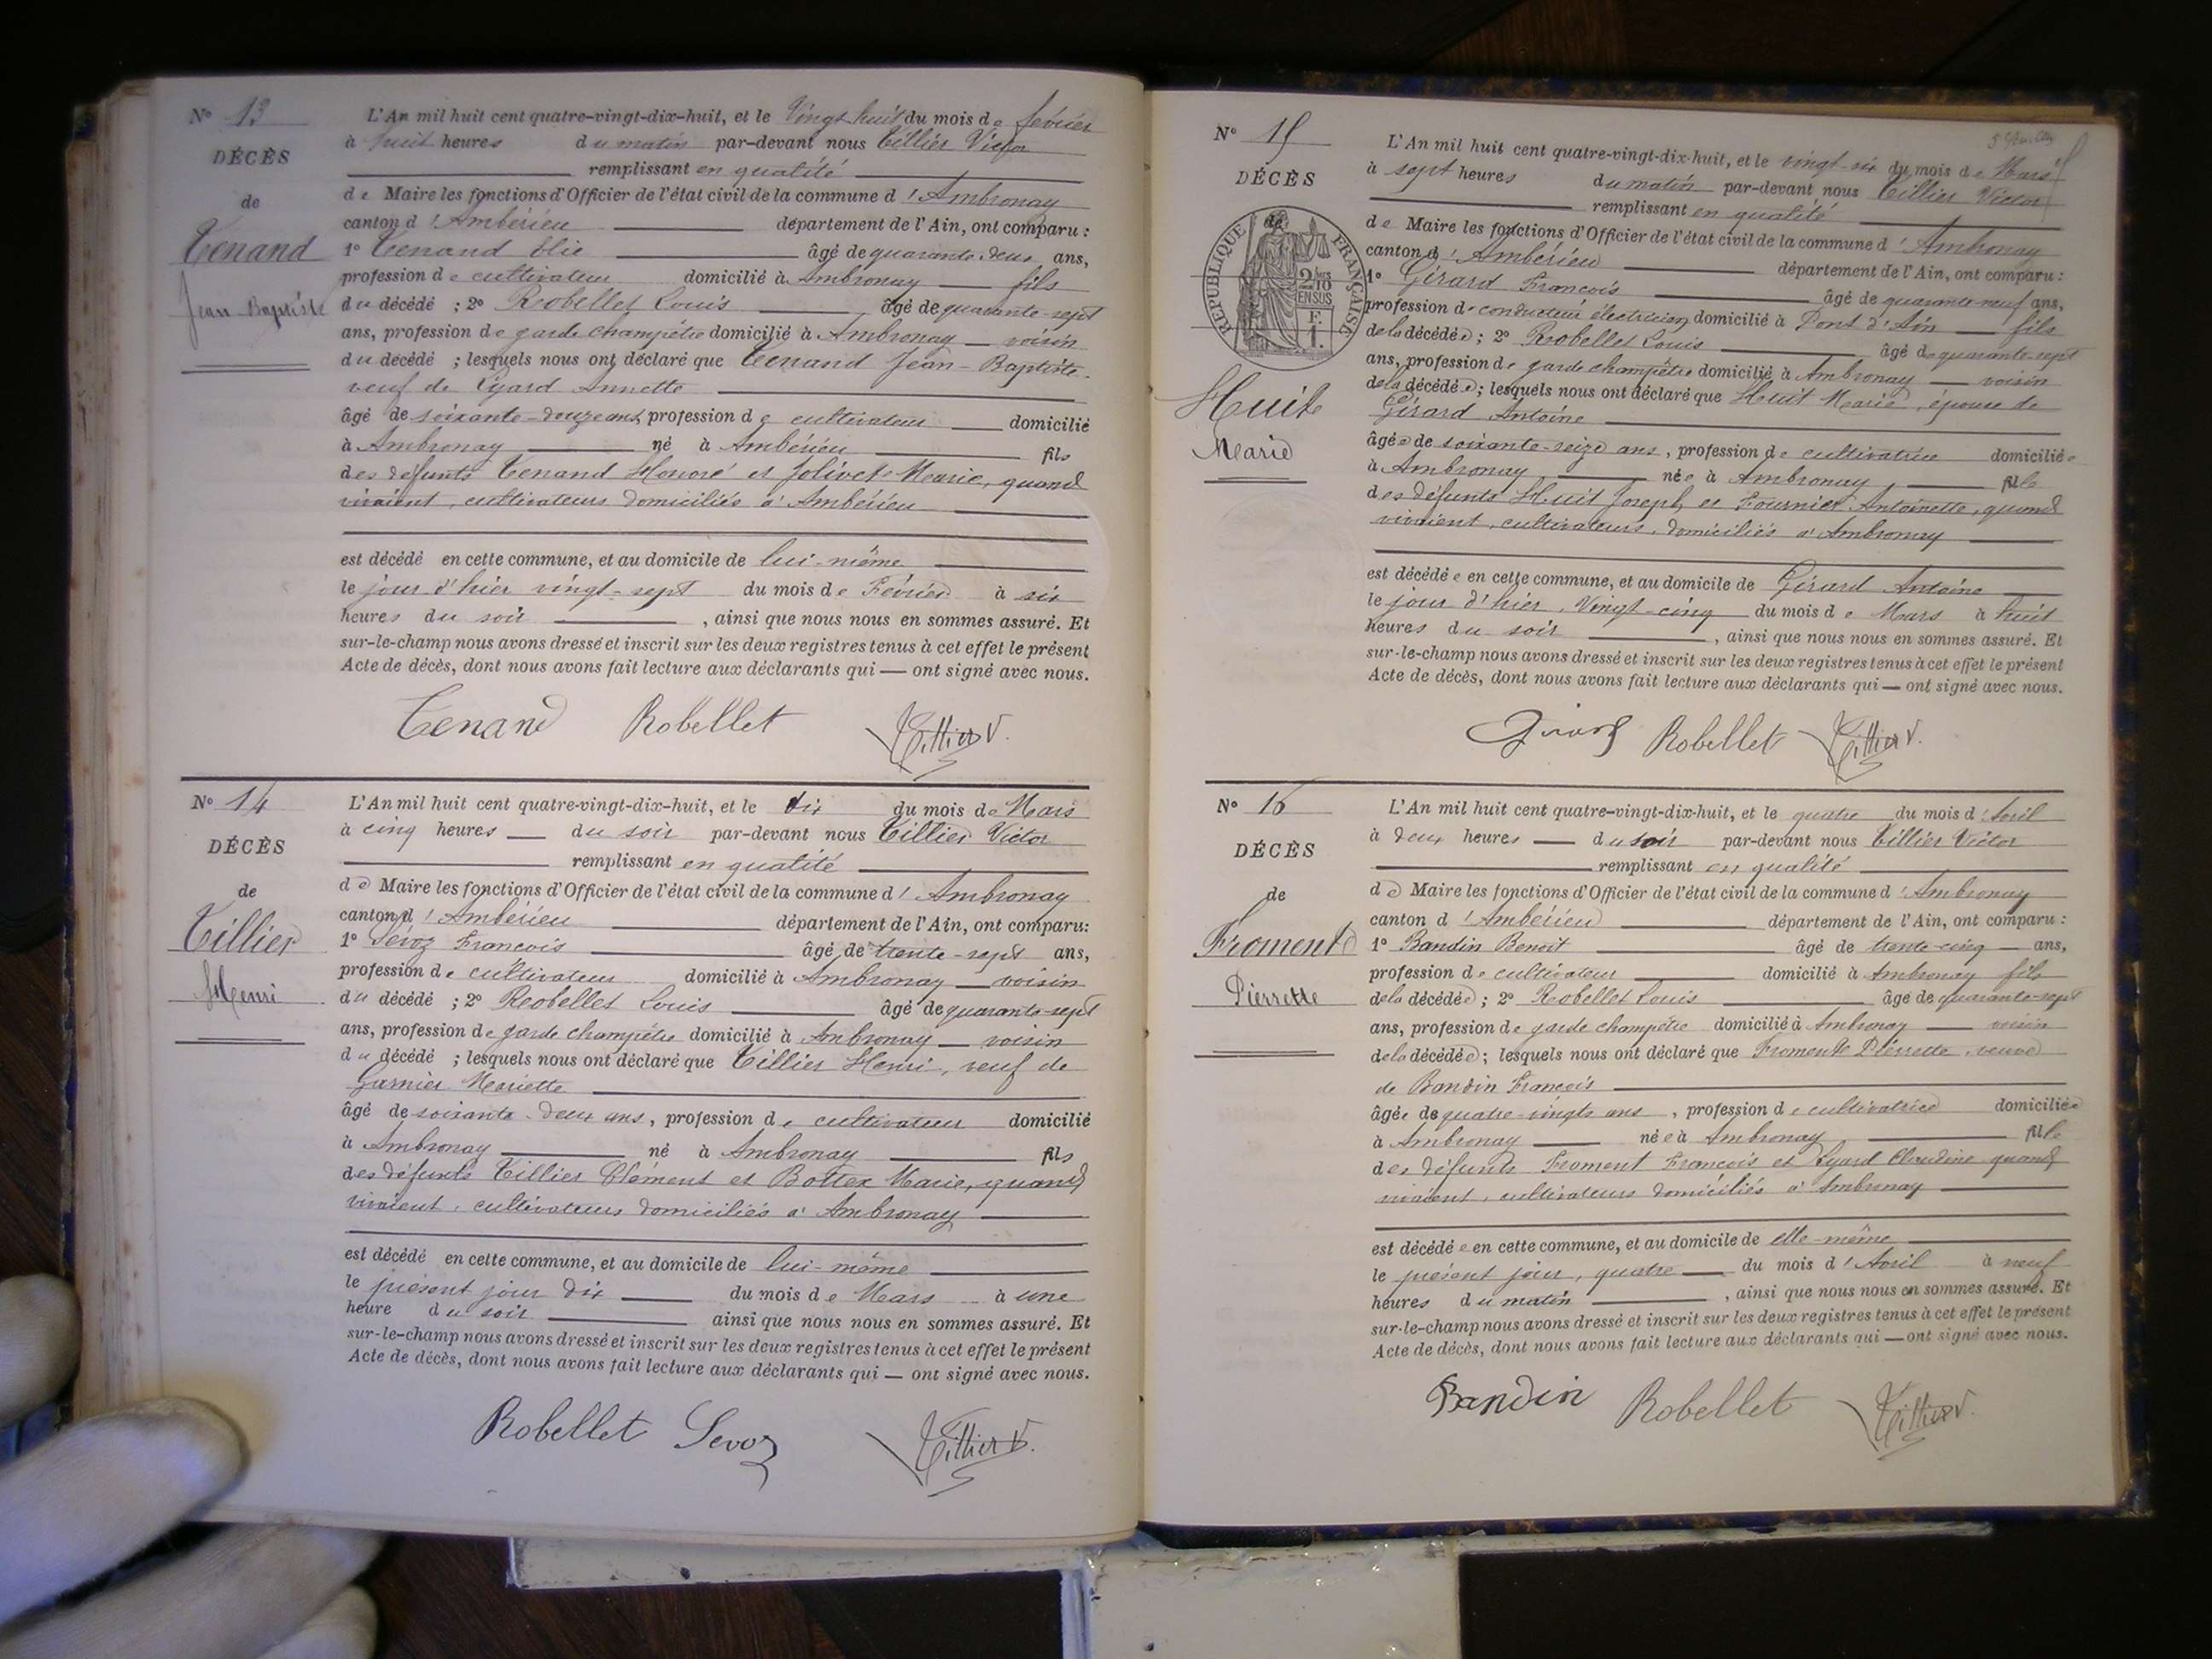 N° 13
DÉCÈS
de
Tenand
Jean-Baptiste
L'An mil huit cent quatre-vingt-dix-huit, et le Vingt huit du mois de février
à huit heures du matin par-devant nous Tillier Victor
remplissant en qualité
de Maire les fonctions d'Officier de l'état civil de la commune d'Ambronay
canton d'Ambérieu département de l'Ain, ont comparu :
1° Tenand Elie âgé de quarante-deux ans,
profession de cultivateur domicilié à Ambronay fils
du décédé ; 2° Robellet Louis âgé de quarante-sept
ans, profession de garde champêtre domicilié à Ambronay voisin
du décédé ; lesquels nous ont déclaré que Tenand Jean-Baptiste
veuf de Cyard Annette
âgé de soixante-douze ans, profession de cultivateur domicilié
à Ambronay né à Ambérieu fils
des défunts Tenand Honoré et Jolivet Marie, quand
vivaient, cultivateurs domiciliés à Ambérieu
est décédé en cette commune, et au domicile de lui-même
le jour d'hier vingt-sept du mois de Février à six
heures du soir , ainsi que nous nous en sommes assuré. Et
sur-le-champ nous avons dressé et inscrit sur les deux registres tenus à cet effet le présent
Acte de décès, dont nous avons fait lecture aux déclarants qui — ont signé avec nous.
Tenand Robellet Tillier V.
N° 14
DÉCÈS
de
Tillier
Henri
L'An mil huit cent quatre-vingt-dix-huit, et le dix du mois de Mars
à cinq heures du soir par-devant nous Tillier Victor
remplissant en qualité
de Maire les fonctions d'Officier de l'état civil de la commune d'Ambronay
canton d'Ambérieu département de l'Ain, ont comparu:
1° Sévoz François âgé de trente-sept ans,
profession de cultivateur domicilié à Ambronay voisin
du décédé ; 2° Robellet Louis âgé de quarante-sept
ans, profession de garde champêtre domicilié à Ambronay voisin
du décédé ; lesquels nous ont déclaré que Tillier Henri, veuf de
Garnier Mariette
âgé de soixante-deux ans, profession de cultivateur domicilié
à Ambronay né à Ambronay fils
des défunts Tillier Clément et Bottex Marie, quand
vivaient, cultivateurs domiciliés à Ambronay
est décédé en cette commune, et au domicile de lui-même
le présent jour dix du mois de Mars à une
heure du soir ainsi que nous nous en sommes assuré. Et
sur-le-champ nous avons dressé et inscrit sur les deux registres tenus à cet effet le présent
Acte de décès, dont nous avons fait lecture aux déclarants qui — ont signé avec nous.
Robellet Sevoz Tillier V.
N° 15
DÉCÈS
de
REPUBLIQUE FRANÇAISE
2/10 EN SUS
F. 1.
Huit
Marie
L'An mil huit cent quatre-vingt-dix-huit, et le vingt-six du mois de Mars
à sept heures du matin par-devant nous Tillier Victor
remplissant en qualité
de Maire les fonctions d'Officier de l'état civil de la commune d'Ambronay
canton d'Ambérieu département de l'Ain, ont comparu :
1° Girard François âgé de quarante-neuf ans,
profession de conducteur électricien domicilié à Pont d'Ain fils
de la décédée ; 2° Robellet Louis âgé de quarante-sept
ans, profession de garde champêtre domicilié à Ambronay voisin
de la décédée ; lesquels nous ont déclaré que Huit Marie, épouse de
Girard Antoine
âgée de soixante-seize ans, profession de cultivatrice domiciliée
à Ambronay née à Ambronay fille
des défunts Huit Joseph et Fournier Antoinette, quand
vivaient, cultivateurs, domiciliés à Ambronay
est décédée en cette commune, et au domicile de Girard Antoine
le jour d'hier, Vingt-cinq du mois de Mars à huit
heures du soir , ainsi que nous nous en sommes assuré. Et
sur-le-champ nous avons dressé et inscrit sur les deux registres tenus à cet effet le présent
Acte de décès, dont nous avons fait lecture aux déclarants qui — ont signé avec nous.
Girard Robellet Tillier V.
N° 16
DÉCÈS
de
Froment
Pierrette
L'An mil huit cent quatre-vingt-dix-huit, et le quatre du mois d'Avril
à deux heures du soir par-devant nous Tillier Victor
remplissant en qualité
de Maire les fonctions d'Officier de l'état civil de la commune d'Ambronay
canton d'Ambérieu département de l'Ain, ont comparu :
1° Bandin Benoît âgé de trente-cinq ans,
profession de cultivateur domicilié à Ambronay fils
de la décédée ; 2° Robellet Louis âgé de quarante-sept
ans, profession de garde champêtre domicilié à Ambronay voisin
de la décédée ; lesquels nous ont déclaré que Froment Pierrette, veuve
de Bandin François
âgée de quatre-vingts ans, profession de cultivatrice domiciliée
à Ambronay née à Ambronay fille
des défunts Froment François et Cyard Claudine quand
vivaient, cultivateurs domiciliés à Ambronay
est décédée en cette commune, et au domicile de elle-même
le présent jour, quatre du mois d'Avril à neuf
heures du matin , ainsi que nous nous en sommes assuré. Et
sur-le-champ nous avons dressé et inscrit sur les deux registres tenus à cet effet le présent
Acte de décès, dont nous avons fait lecture aux déclarants qui — ont signé avec nous.
Bandin Robellet Tillier V.